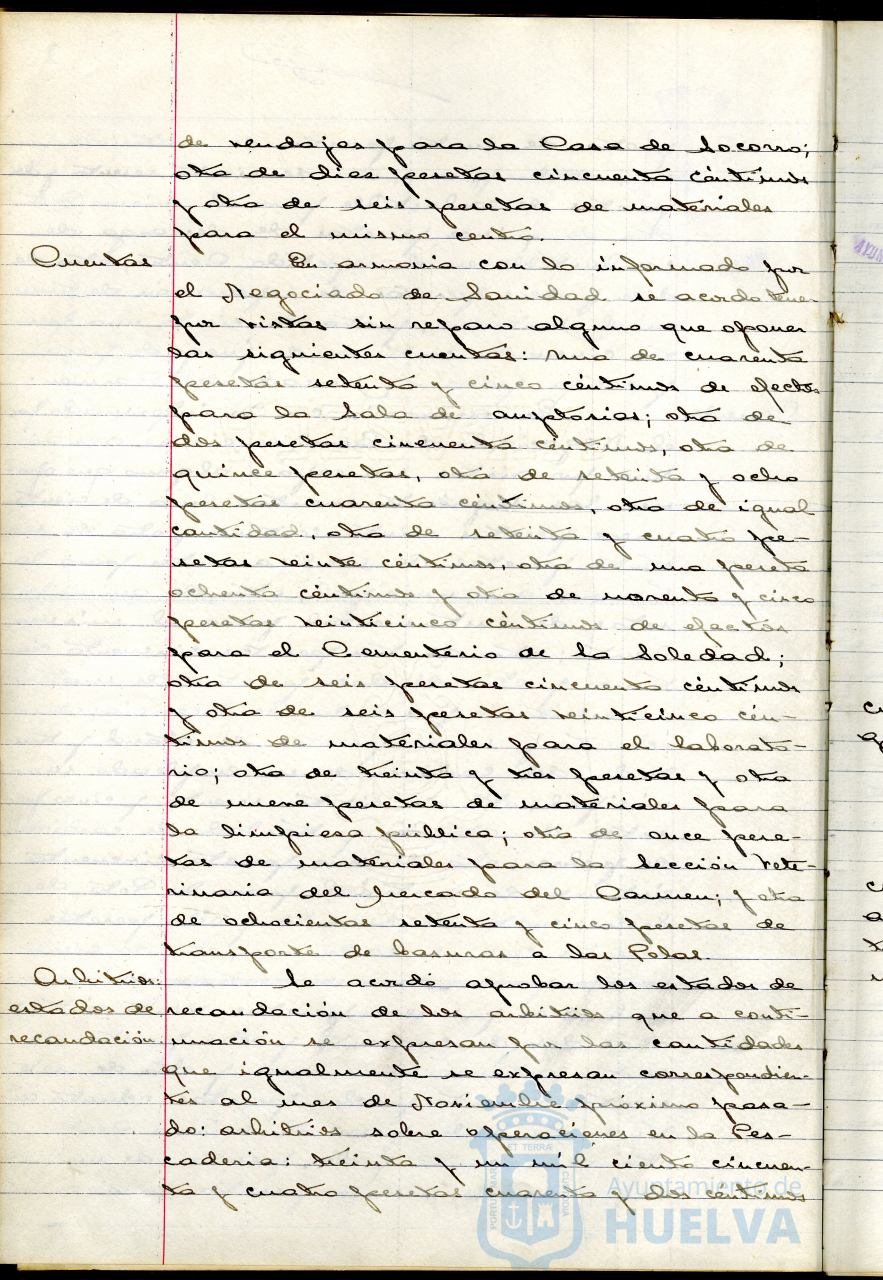 de vendajes para la Casa de Socorro;
otra de diez pesetas cincuenta céntimos
y otra de seis pesetas de materiales
para el mismo centro.
Cuentas En armonia con lo informado por
el Negociado de Sanidad se acordó tener
por vistas sin reparo alguno que oponer
las siguientes cuentas: una de cuarenta
pesetas setenta y cinco céntimos de efectos
para la Sala de autopsias; otra de
dos pesetas cincuenta céntimos, otra de
quince pesetas, otra de setenta y ocho
pesetas cuarenta céntimos, otra de igual
cantidad, otra de setenta y cuatro pe-
setas veinte céntimos, otra de una peseta
ochenta céntimos y otra de noventa y cinco
pesetas veinticinco céntimos de efectos
para el Cementerio de la Soledad;
otra de seis pesetas cincuenta céntimos
y otra de seis pesetas veinticinco cén-
timos de materiales para el laborato-
rio; otra de treinta y tres pesetas y otra
de nueve pesetas de materiales para
la limpieza pública; otra de once pese-
tas de materiales para la Sección Vete-
rinaria del Mercado del Carmen; y otra
de ochocientas setenta y cinco pesetas de
transporte de basuras a las
Arbitrios: Se acordó aprobar los estados de
estados de recaudación de los arbitrios que a conti-
recaudación. nuación se expresan por las cantidades
que igualmente se expresan correspondien-
tes al mes de Noviembre próximo pasa-
do: arbitrios sobre operaciones en la Pes-
caderia: treinta y un mil ciento cincuen-
ta y cuatro pesetas cuarenta y dos céntimos
Ayuntamiento de
HUELVA